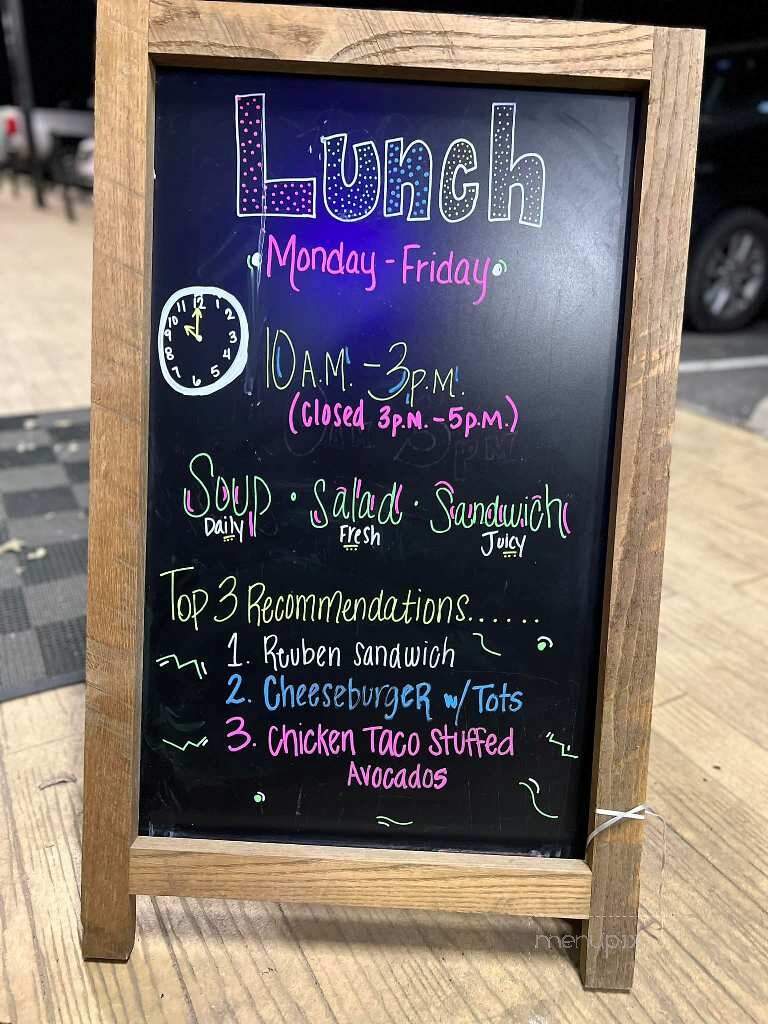 Lunch
Monday - Friday
12 1 2 3 4 5 6 7 8 9 10 11
10 A.M. - 3 P.M.
(Closed 3 P.M. - 5 P.M.)
Soup · Salad · Sandwich
Daily Fresh Juicy
Top 3 Recommendations......
1. Reuben Sandwich
2. Cheeseburger w/ Tots
3. Chicken Taco Stuffed
Avocados
menupix